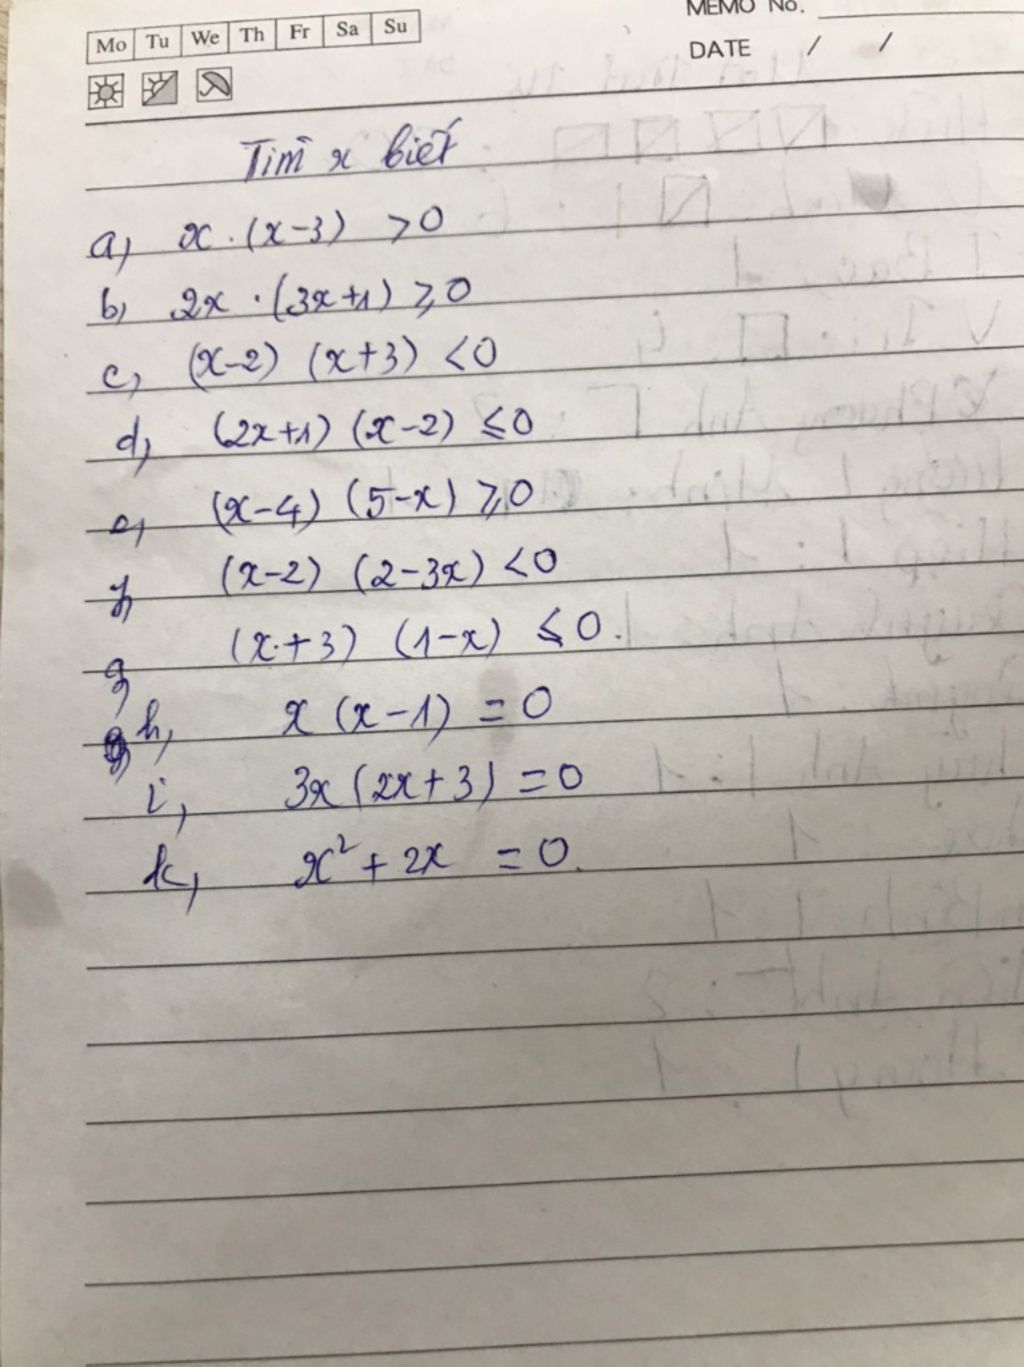 MEMO No.
Mo Tu We Th Fr Sa Su
DATE / /
Tìm x biết
a, x . (x-3) >0
b, 2x . (3x+1) ⩾0
c, (x-2) (x+3) <0
d, (2x+1) (x-2) ⩽0
e, (x-4) (5-x) ⩾0
f, (x-2) (2-3x) <0
g (x+3) (1-x) ⩽0.
h, x (x-1) =0
i, 3x (2x+3) =0
k, x² + 2x =0.